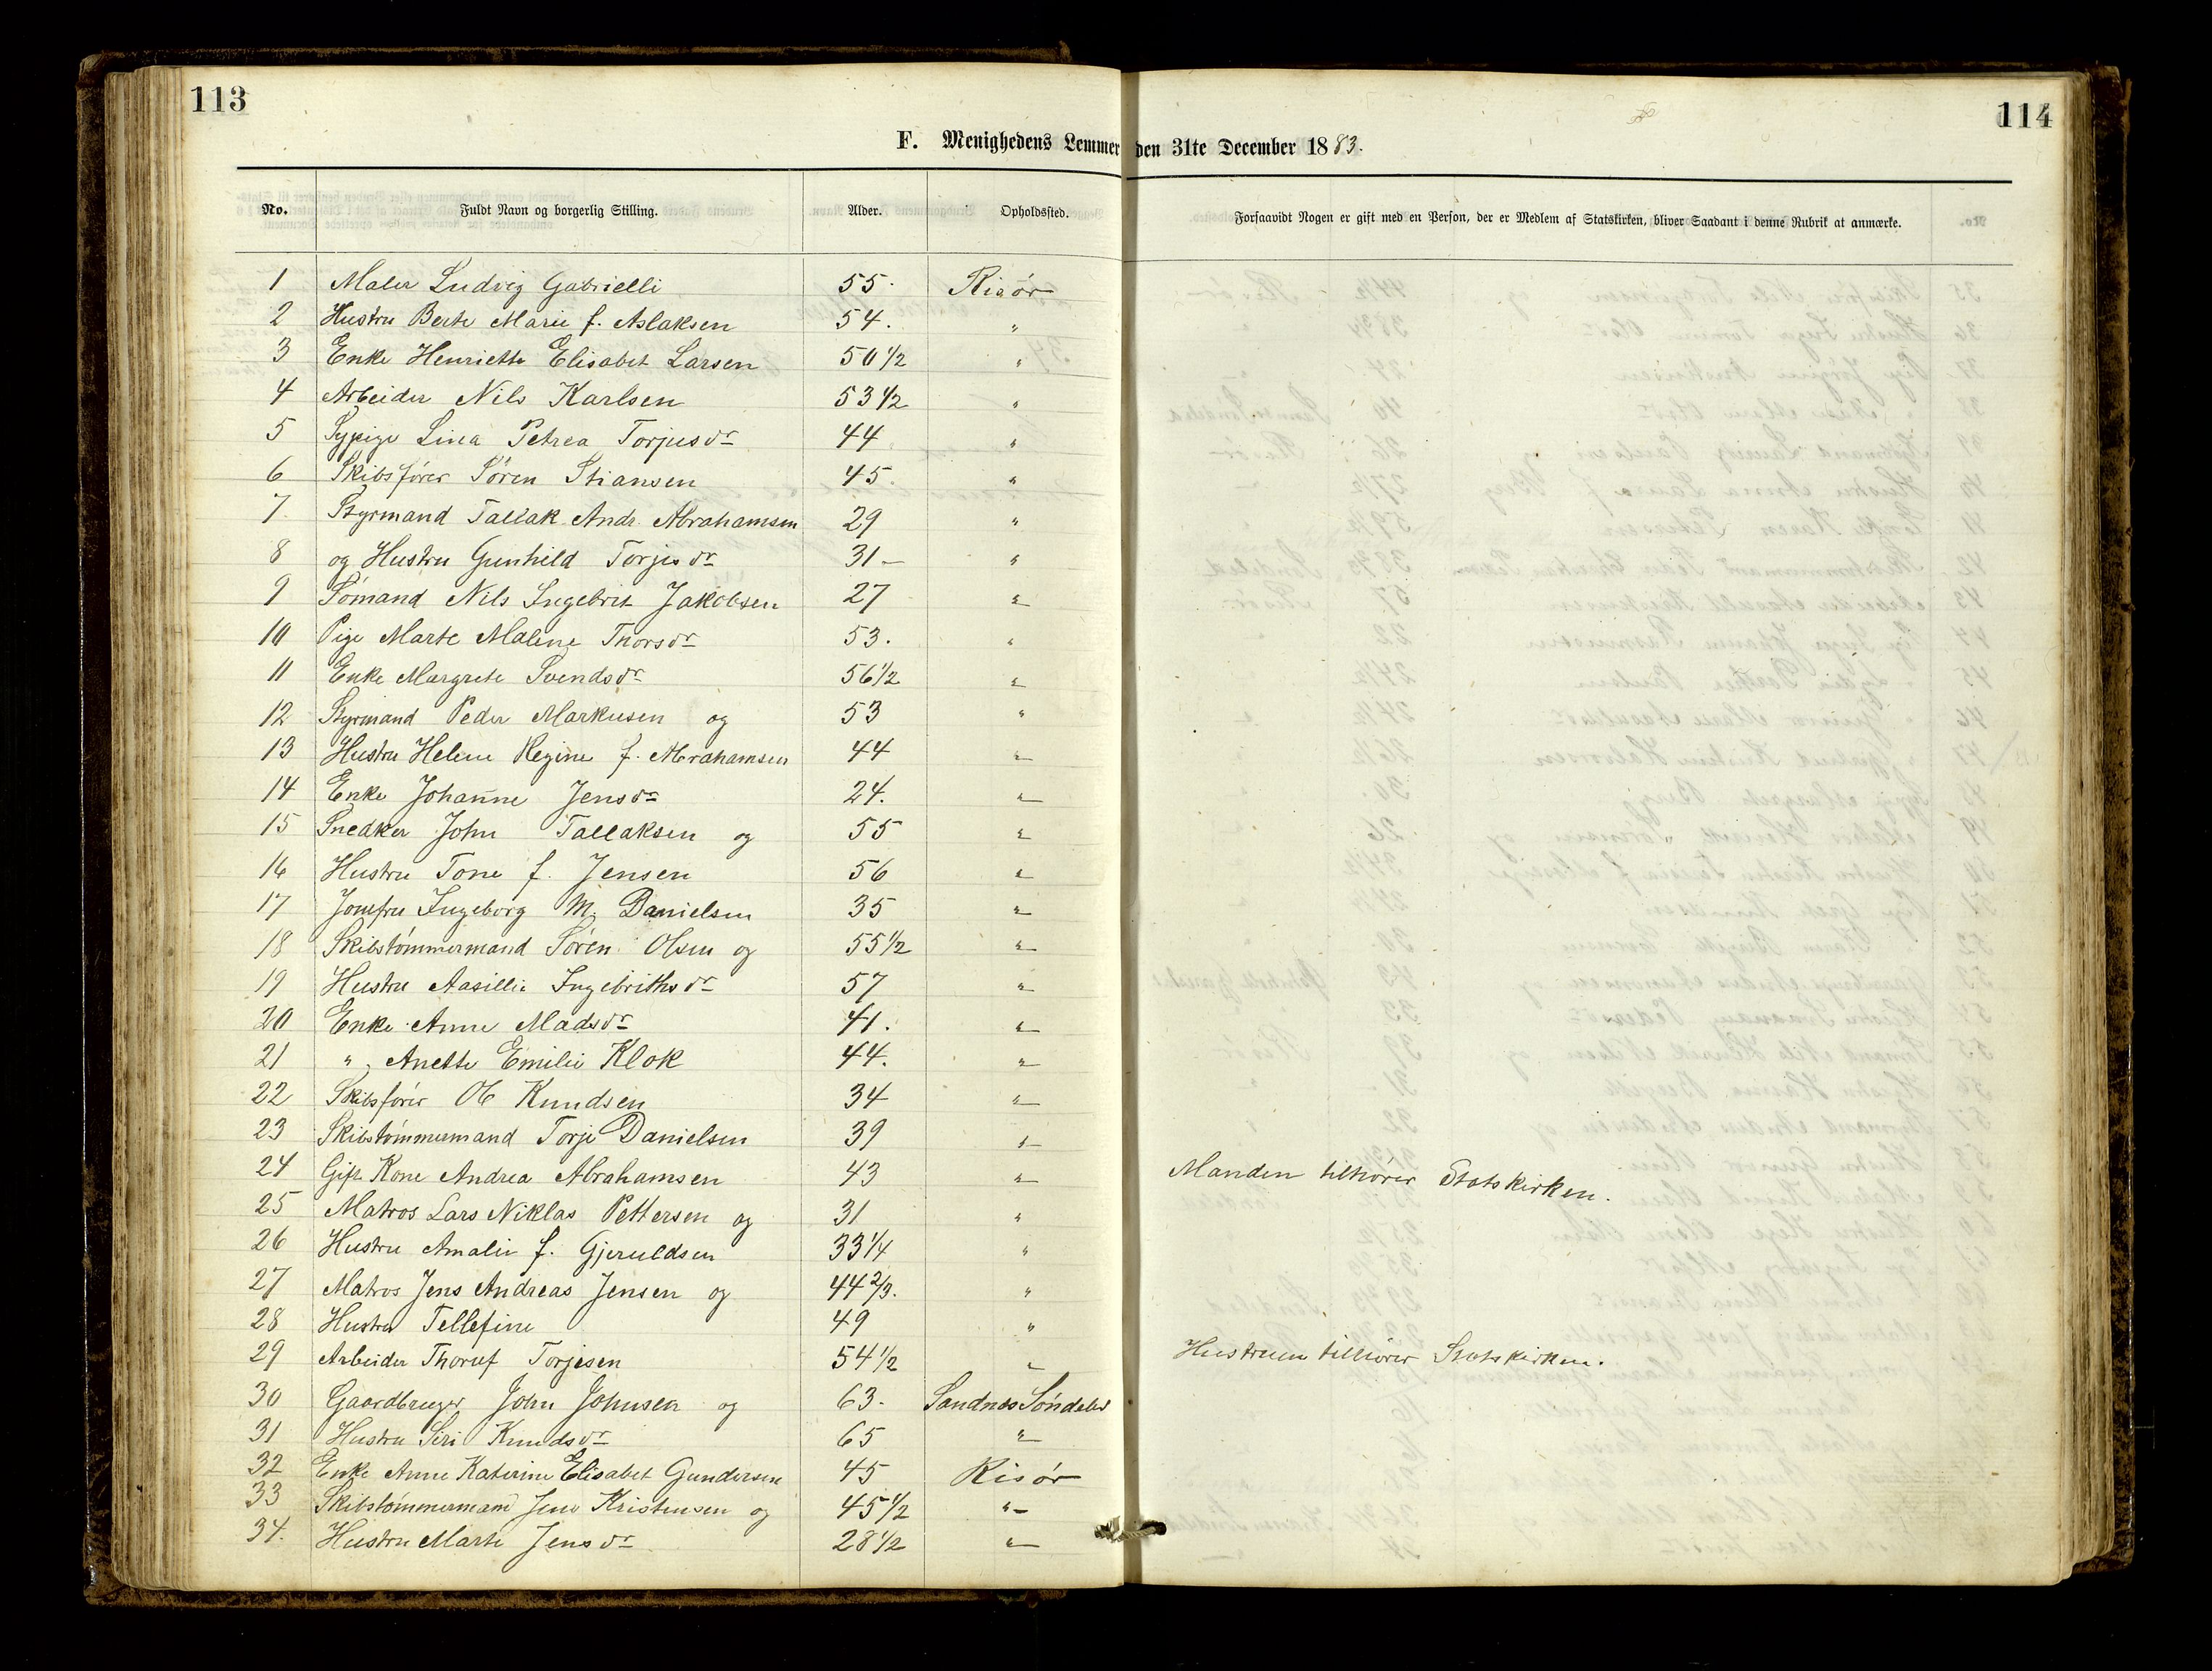 113
114
F. Menighedens Lemmer den 31te December 1883.
No. Fuldt Navn og borgerlig Stilling. Alder. Opholdssted. Forsaavidt Nogen er gift med en Person, der er Medlem af Statskirken, bliver Saadant i denne Rubrik at anmærke.
1 Maler Ludvig Gabrielli 55. Risör
2 Hustru Berte Marie f. Aslaksen 54. "
3 Enke Henriette Elisabet Larsen 50 1/2 "
4 Arbeider Nils Karlsen 53 1/2 "
5 Sypige Lina Petrea Torjusdr 44 "
6 Skibsförer Sören Stiansen 45. "
7 Styrmand Tallak Andr. Abrahamsen 29 "
8 og Hustru Gunhild Torjesdr 31 "
9 Sömand Nils Ingebrit Jakobsen 27 "
10 Pige Marte Malene Thorsdr 53. "
11 Enke Margrete Svendsdr 56 1/2 "
12 Styrmand Peder Markusen og 53 "
13 Hustru Helene Regine f. Abrahamsen 44 "
14 Enke Johanne Jensdr 24. "
15 Snedker John Tallaksen og 55 "
16 Hustru Tone f. Jensen 56 "
17 Jomfru Ingeborg M. Danielsen 35 "
18 Skibstömmermand Sören Olsen og 55 1/2 "
19 Hustru Aasillie Ingebrithsdr 57 "
20 Enke Anne Madsdr 41. "
21 " Anette Emilie Klok 44. "
22 Skibsförer Ol Knudsen 34 "
23 Skibstömmermand Torje Danielsen 39 "
24 Gift Kone Andrea Abrahamsen 43 " Manden tilhörer Statskirken.
25 Matros Lars Niklas Pettersen og 31 "
26 Hustru Amalie f. Gjeruldsen 33 1/4 "
27 Matros Jens Andreas Jensen og 44 2/3. "
28 Hustru Tellefine 49 "
29 Arbeider Thoruf Torjesen 54 1/2 " Hustruen tilhörer Statskirken.
30 Gaardbruger John Johnsen og 63. Sandnes Söndeled
31 Hustru Siri Knudsdr 65 "
32 Enke Anne Katerine Elisabet Gundersen 45 Risör
33 Skibstömmermand Jens Kristensen og 45 1/2 "
34. Hustru Marte Jensdr 28 1/2 "